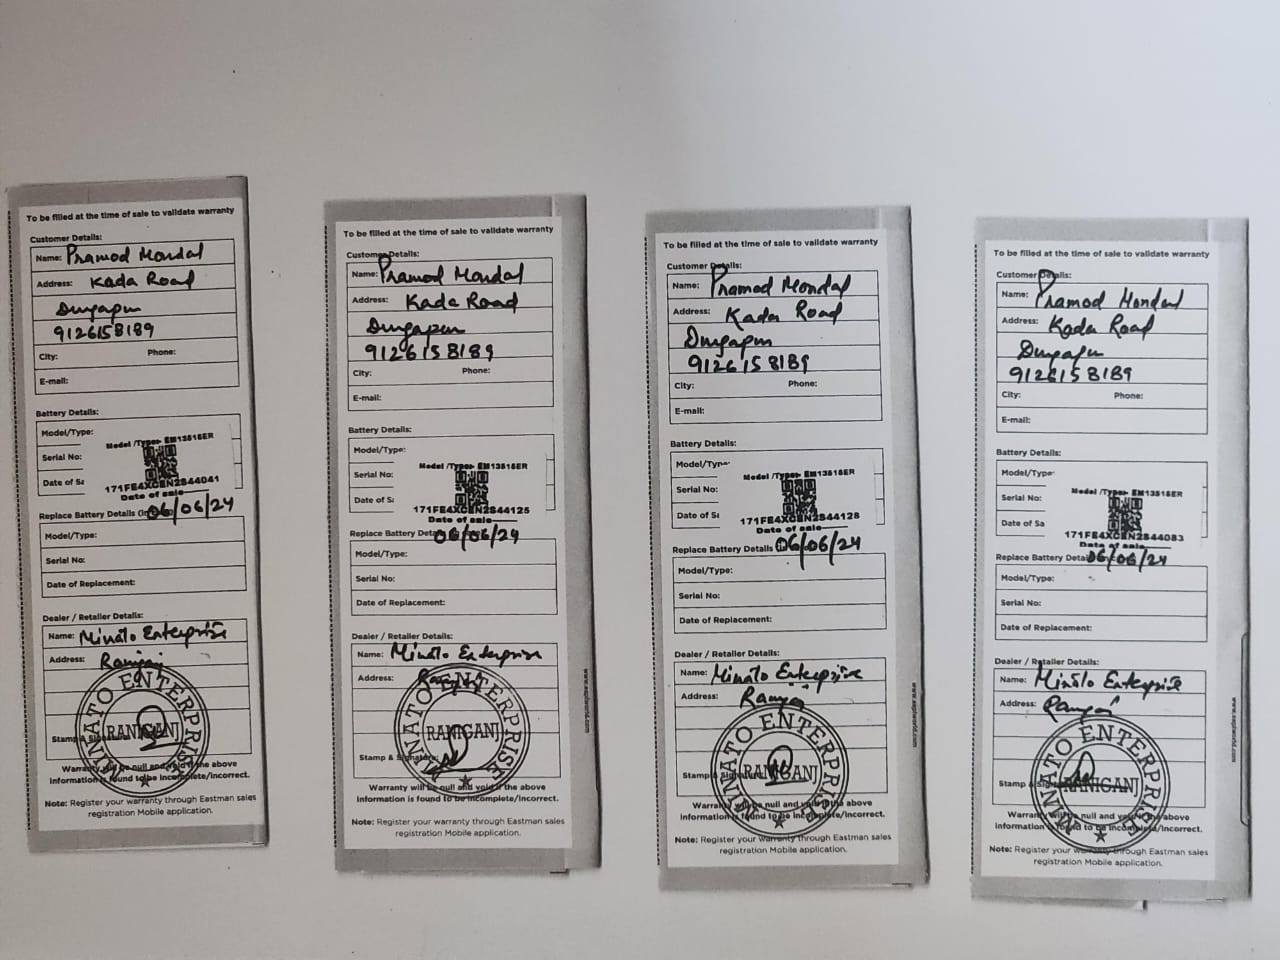 To be filled at the time of sale to validate warranty
Customer Details:
Name: Pramod Mondal
Address: Kada Road
Durgapur
9126158189
City: Phone:
E-mail:
Battery Details:
Model/Type:
Model /Type:- EM13518ER
Serial No:
Date of Sa
171FE4XCEN2844041
Date of sale
06/06/24
Replace Battery Details
Model/Type:
Serial No:
Date of Replacement:
Dealer / Retailer Details:
Name: Minato Enterprise
Address: Raniganj
MINATO ENTERPRISE
RANIGANJ
Stamp &
Warranty will be null and void if the above
information is found to be incomplete/incorrect.
Note: Register your warranty through Eastman sales
registration Mobile application.
To be filled at the time of sale to validate warranty
Customer Details:
Name: Pramod Mondal
Address: Kada Road
Durgapur
9126158189
City: Phone:
E-mail:
Battery Details:
Model/Type:
Model /Type:- EM13518ER
Serial No:
Date of Sa
171FE4XCEN2844125
Date of sale
06/06/24
Replace Battery
Model/Type:
Serial No:
Date of Replacement:
Dealer / Retailer Details:
Name: Minato Enterprise
Address: Raniganj
MINATO ENTERPRISE
RANIGANJ
Stamp & Signature:
Warranty will be null and void if the above
information is found to be incomplete/incorrect.
Note: Register your warranty through Eastman sales
registration Mobile application.
www.eaplworld.com
To be filled at the time of sale to validate warranty
Customer Details:
Name: Pramod Mondal
Address: Kada Road
Durgapur
9126158189
City: Phone:
E-mail:
Battery Details:
Model/Type
Model /Type:- EM13518ER
Serial No:
Date of Sa
171FE4XCEN2844128
Date of sale
06/06/24
Replace Battery Details
Model/Type:
Serial No:
Date of Replacement:
Dealer / Retailer Details:
Name: Minato Enterprise
Address: Raniganj
MINATO ENTERPRISE
RANIGANJ
Stamp & Signature
Warranty will be null and void if the above
information is found to be incomplete/incorrect.
Note: Register your warranty through Eastman sales
registration Mobile application.
www.eaplworld.com
To be filled at the time of sale to validate warranty
Customer Details:
Name: Pramod Mondal
Address: Kada Road
Durgapur
9126158189
City: Phone:
E-mail:
Battery Details:
Model/Type
Model /Type:- EM13518ER
Serial No:
Date of Sa
171FE4XCEN2844083
Date of sale
06/06/24
Replace Battery Details
Model/Type:
Serial No:
Date of Replacement:
Dealer / Retailer Details:
Name: Minato Enterprise
Address: Raniganj
MINATO ENTERPRISE
RANIGANJ
Stamp &
Warranty will be null and void if the above
information is found to be incomplete/incorrect.
Note: Register your warranty through Eastman sales
registration Mobile application.
www.eaplworld.com